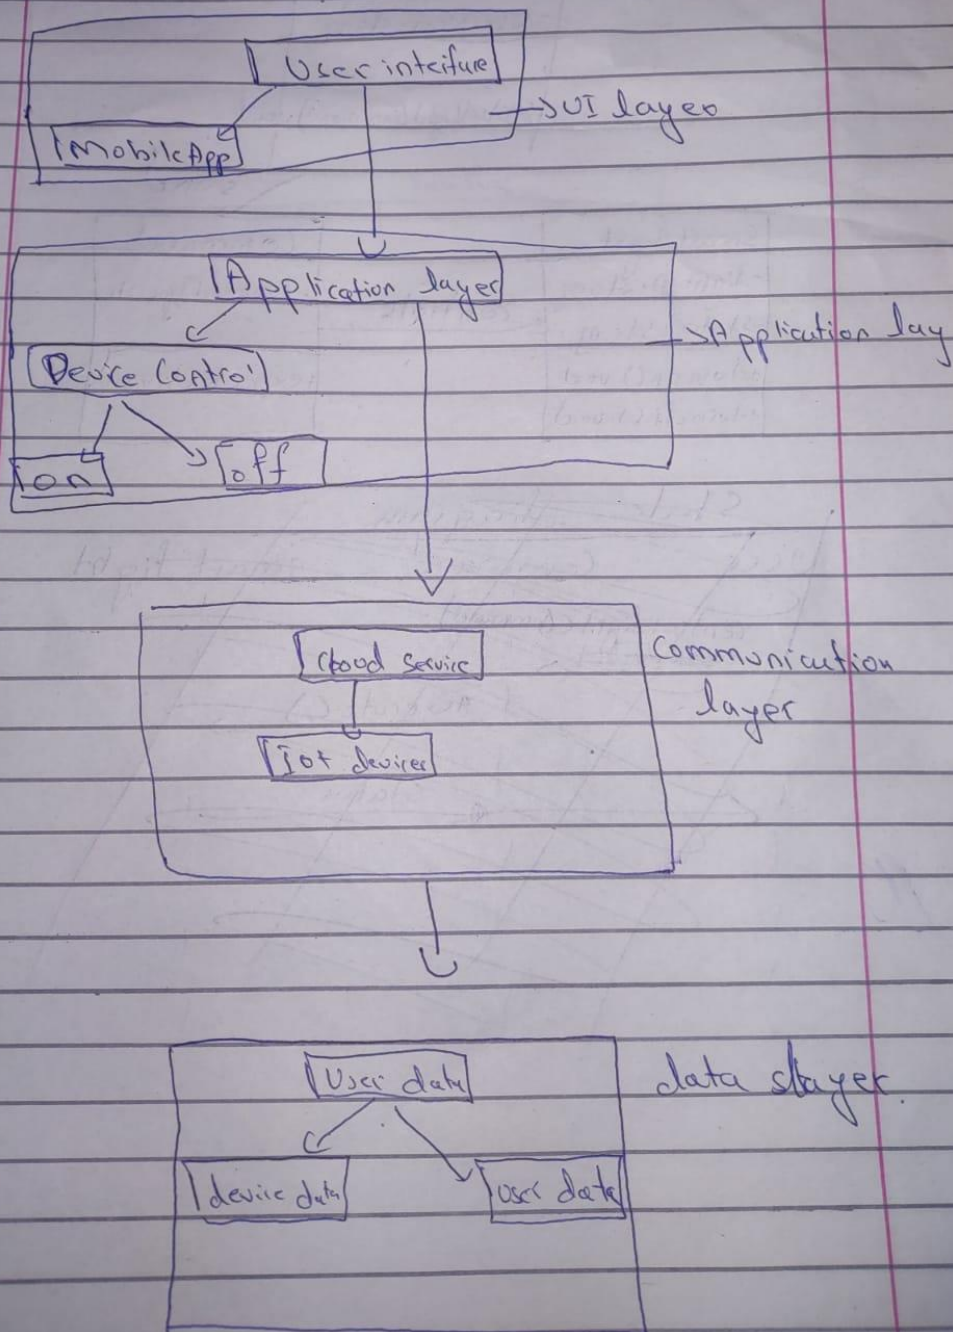 User inteifure
UI layer
Mobile App
Application layer
Application lay
Device Control
on
off
Cloud Service
Communicution
layer
Iot devices
User data
data slayer.
device data
user data